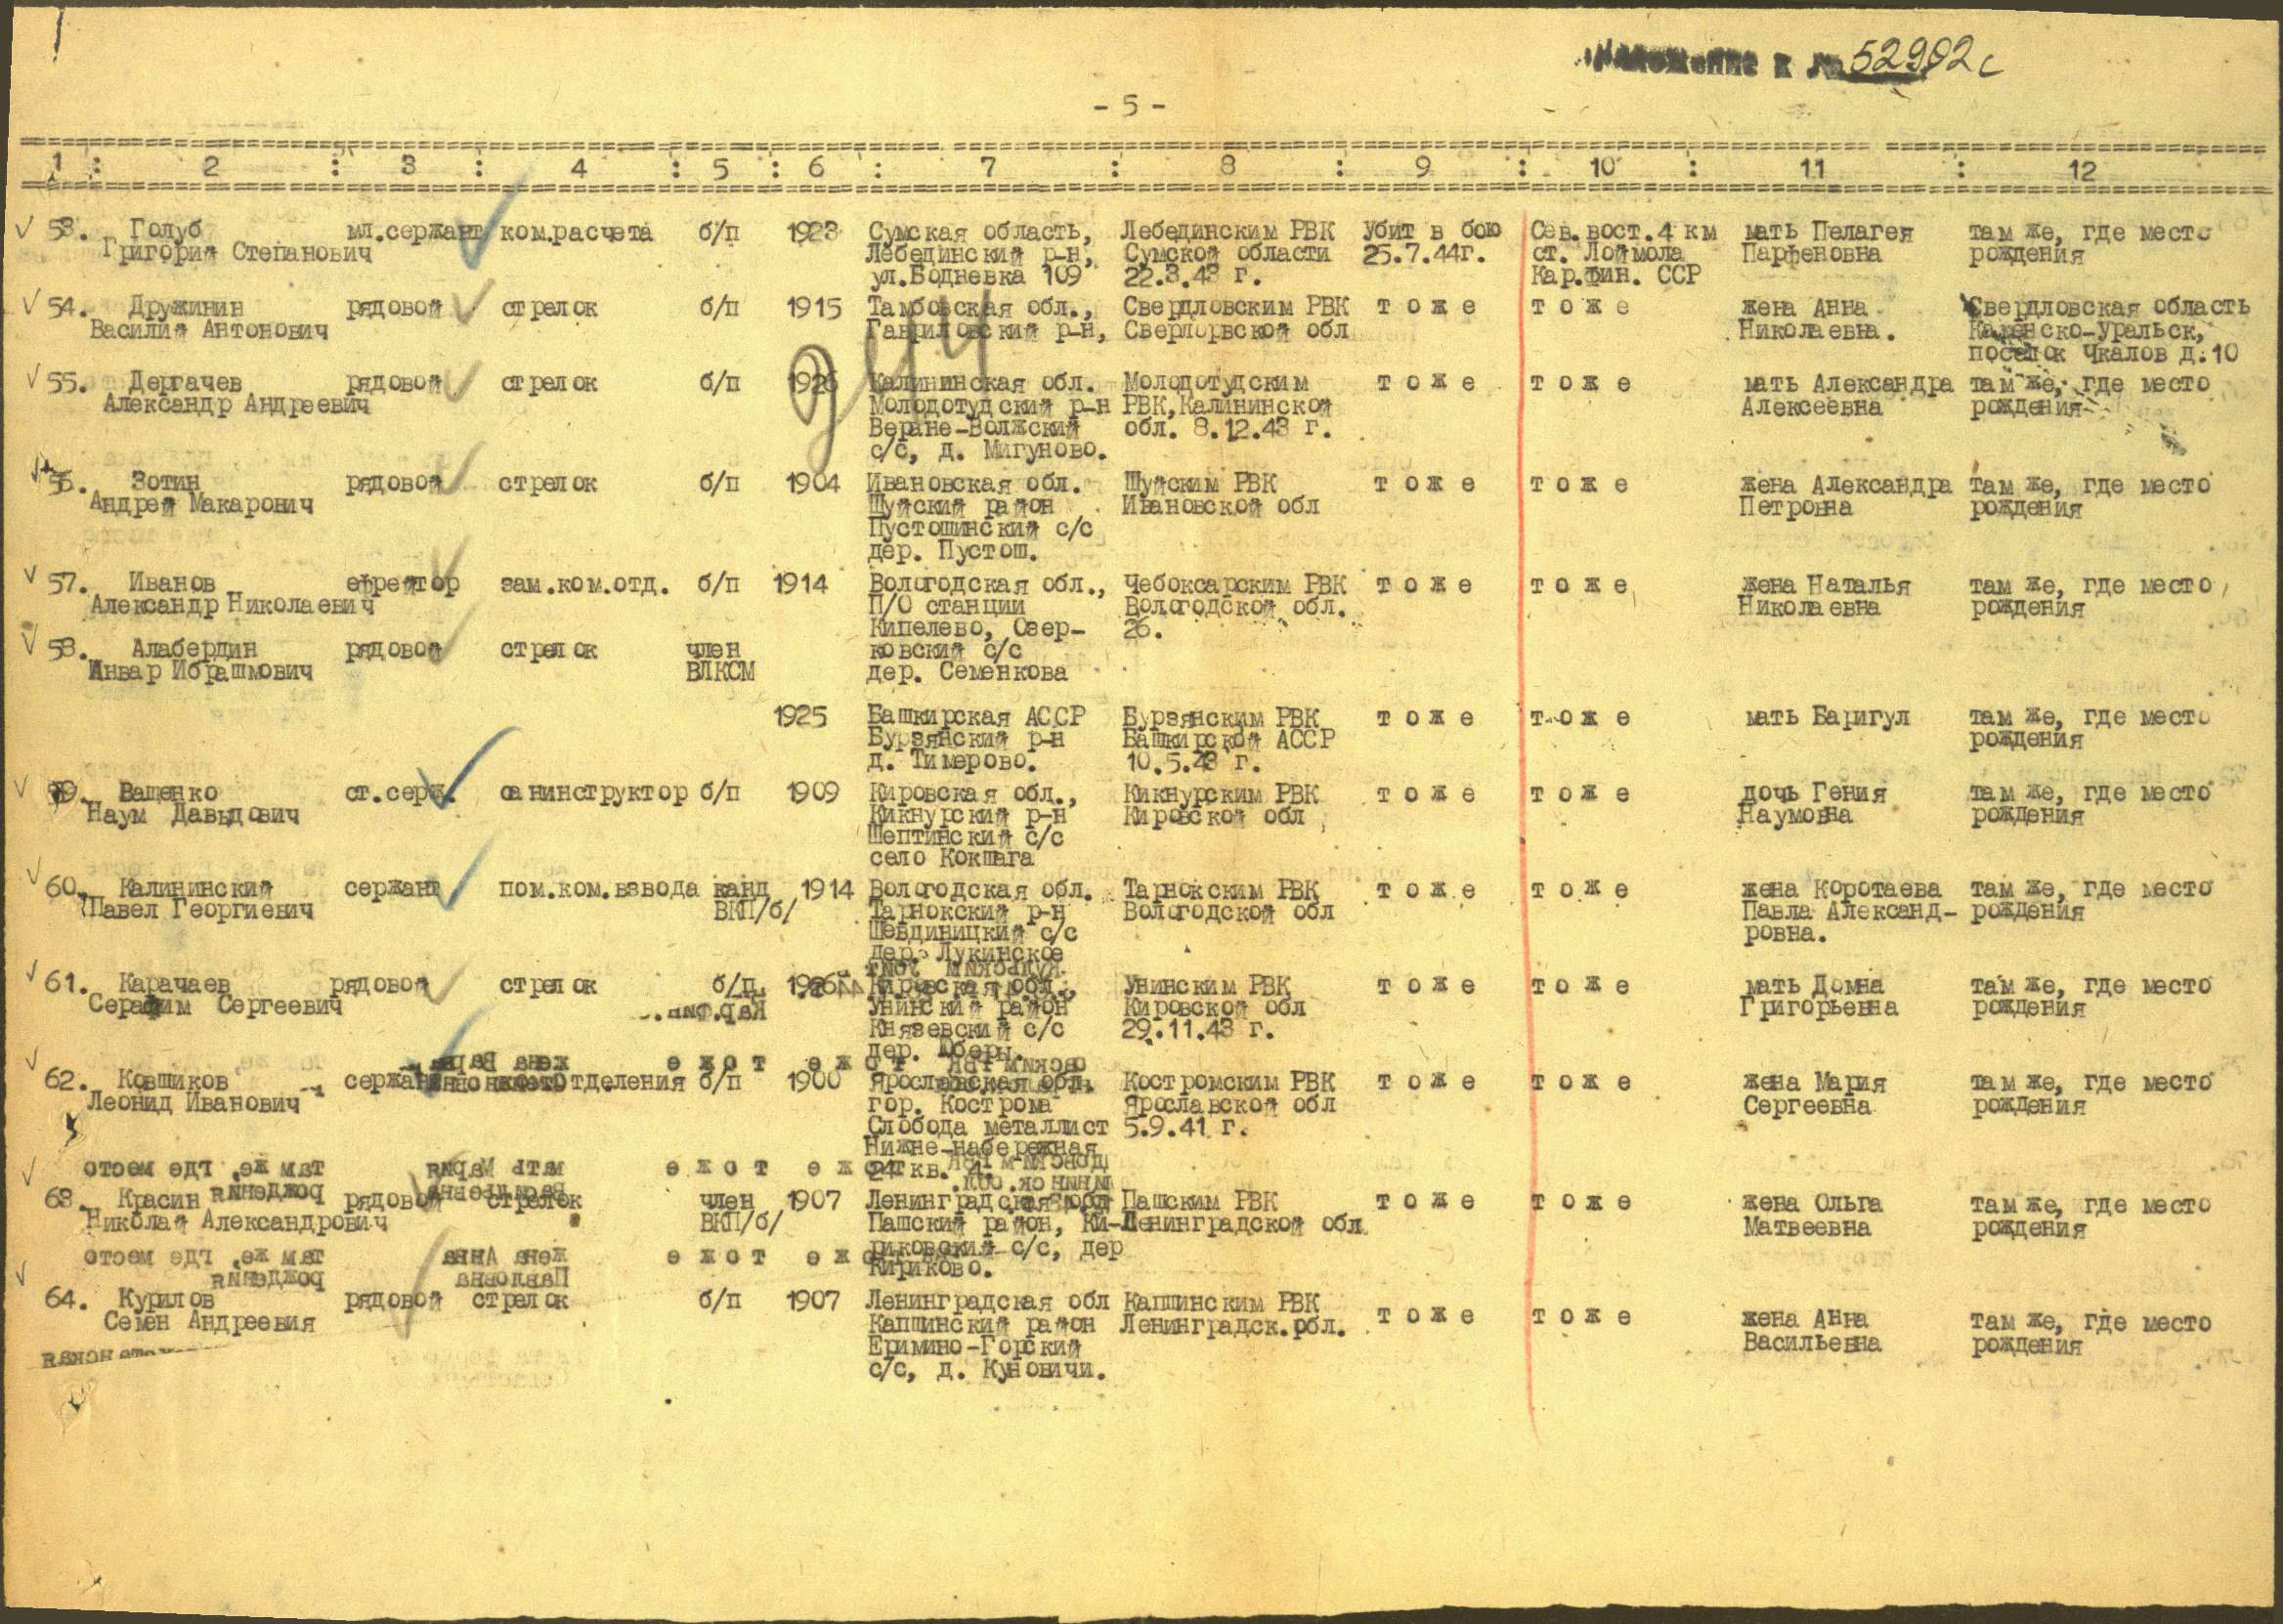 к № 52902с
- 5 -
1 : 2 : 3 : 4 : 5 : 6 : 7 : 8 : 9 : 10 : 11 : 12
53. Голуб мл.сержант ком.расчета б/п 1923 Сумская область, Лебединским РВК Убит в бою Сев.вост.4 км мать Пелагея там же, где место
Григорий Степанович Лебединский р-н, Сумской области 25.7.44г. ст. Лоймола Парфеновна рождения
ул.Бодневка 109 22.3.43 г. Кар.Фин. ССР
54. Дружинин рядовой стрелок б/п 1915 Тамбовская обл., Свердловским РВК т о ж е т о ж е жена Анна Свердловская область
Василий Антонович Гавриловский р-н, обл Николаевна. Каменско-уральск,
поселок Чкалов д.10
244
55. Дергачев рядовой стрелок б/п 1926 Калининская обл. Молодотудским т о ж е т о ж е мать Александра там же, где место
Александр Андреевич Молодотудский р-н РВК,Калининской Алексеевна рождения
Веране-Волжский обл. 8.12.43 г.
с/с, д. Мигуново.
56. Зотин рядовой стрелок б/п 1904 Ивановская обл. Шуйским РВК т о ж е т о ж е жена Александра там же, где место
Андрей Макарович Шуйский район Ивановской обл Петровна рождения
Пустошинский с/с
дер. Пустош.
57. Иванов ефрейтор зам.ком.отд. б/п 1914 Вологодская обл., Чебоксарским РВК т о ж е т о ж е жена Наталья там же, где место
Александр Николаевич П/О станции Вологодской обл. Николаевна рождения
Кипелево, Озер- 26.
58. Алабердин рядовой стрелок член ковский с/с
Анвар Ибрашмович ВЛКСМ дер. Семенкова
1925 Башкирская АССР Бурзянским РВК т о ж е т о ж е мать Баригул там же, где место
Бурзянский р-н Башкирской АССР рождения
д. Тимерово. 10.5.43 г.
59. Ващенко ст.серж. санинструктор б/п 1909 Кировская обл., Кикнурским РВК т о ж е т о ж е дочь Гения там же, где место
Наум Давыдович Кикнурский р-н Кировской обл Наумовна рождения
Шептинский с/с
село Кокшага
60. Калининский сержант пом.ком.взвода канд 1914 Вологодская обл. Тарнокским РВК т о ж е т о ж е жена Коротаева там же, где место
Павел Георгиевич ВКП/б/ Тарнокский р-н Вологодской обл Павла Александ- рождения
Шевдиницкий с/с ровна.
дер. Лукинское
61. Карачаев рядовой стрелок б/п 1926 Кировская обл., Унинским РВК т о ж е т о ж е мать Домна там же, где место
Серафим Сергеевич Унинский район Кировской обл Григорьевна рождения
Князевский с/с 29.11.43 г.
дер. Юберы.
62. Ковшиков сержант отделения б/п 1900 Ярославская обл. Костромским РВК т о ж е т о ж е жена Мария там же, где место
Леонид Иванович гор. Кострома Ярославской обл Сергеевна рождения
Слобода металлист 5.9.41 г.
Нижне-набережная
24 кв. 4.
63. Красин рядовой стрелок член 1907 Ленинградская обл Пашским РВК т о ж е т о ж е жена Ольга там же, где место
Николай Александрович ВКП/б/ Пашский район, Ки- Ленинградской обл Матвеевна рождения
риковский с/с, дер
Кириково.
64. Курилов рядовой стрелок б/п 1907 Ленинградская обл Капшинским РВК т о ж е т о ж е жена Анна там же, где место
Семен Андреевия Капшинский район Ленинградск.обл. Васильевна рождения
Еримино-Горский
с/с, д. Куновичи.